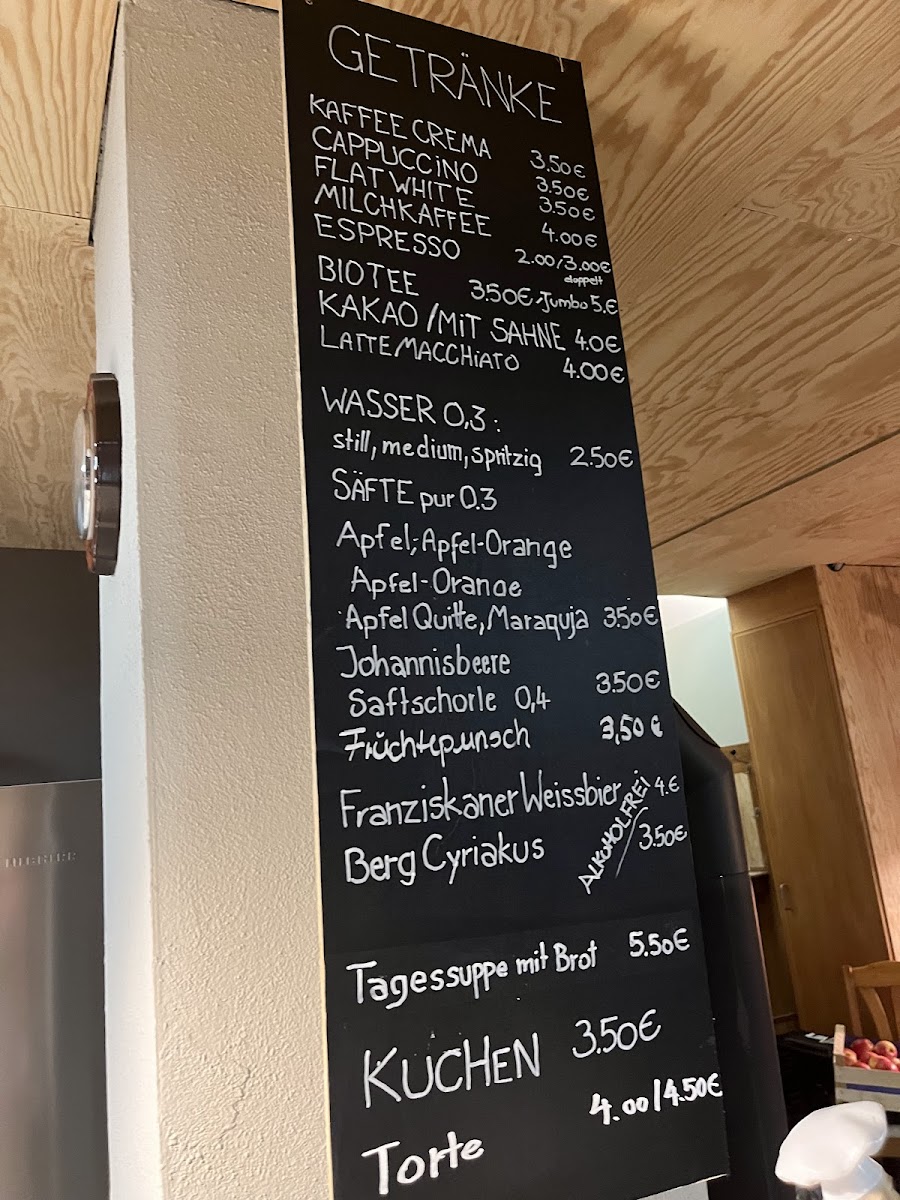 GETRÄNKE
KAFFEE CREMA 3.50€
CAPPUCCINO 3.50€
FLAT WHITE 3.50€
MILCHKAFFEE 4.00€
ESPRESSO 2.00/3.00€
doppelt
BIOTEE 3.50€-Jumbo 5.€
KAKAO/MIT SAHNE 4.0€
LATTE MACCHIATO 4.00€
WASSER 0,3:
still, medium, spritzig 2.50€
SÄFTE pur 0.3
Apfel, Apfel-Orange
Apfel-Orange
Apfel Quitte, Maraquja 3.50€
Johannisbeere
Saftschorle 0,4 3.50€
Früchtepunsch 3,50€
Franziskaner Weissbier 4.€
ALKOHOLFREI
Berg Cyriakus 3.50€
Tagessuppe mit Brot 5.50€
KUCHEN 3.50€
Torte 4.00/4.50€
LIEBHERR